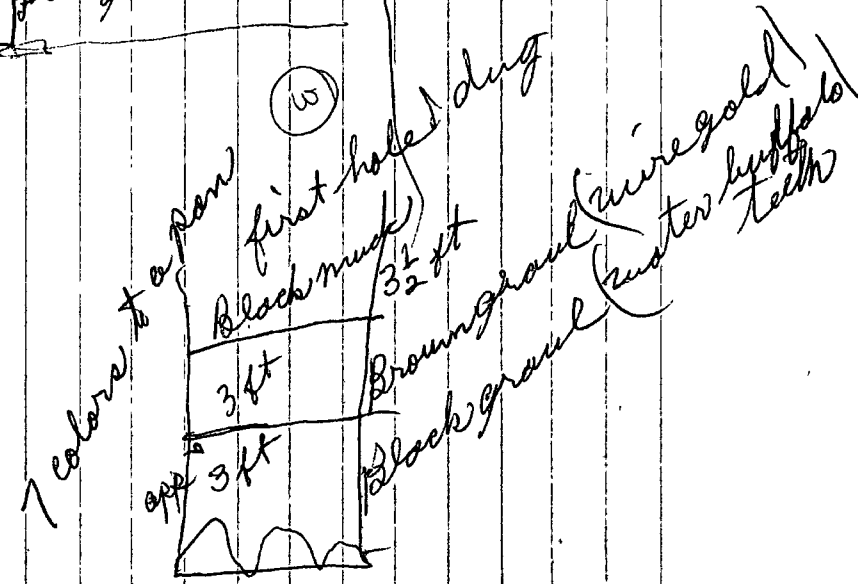 W
first hole dug
7 colors to a pan
Black muck
3 1/2 ft
3 ft
Brown gravel (wire gold)
app 3 ft
Black gravel (water buffalo teeth)